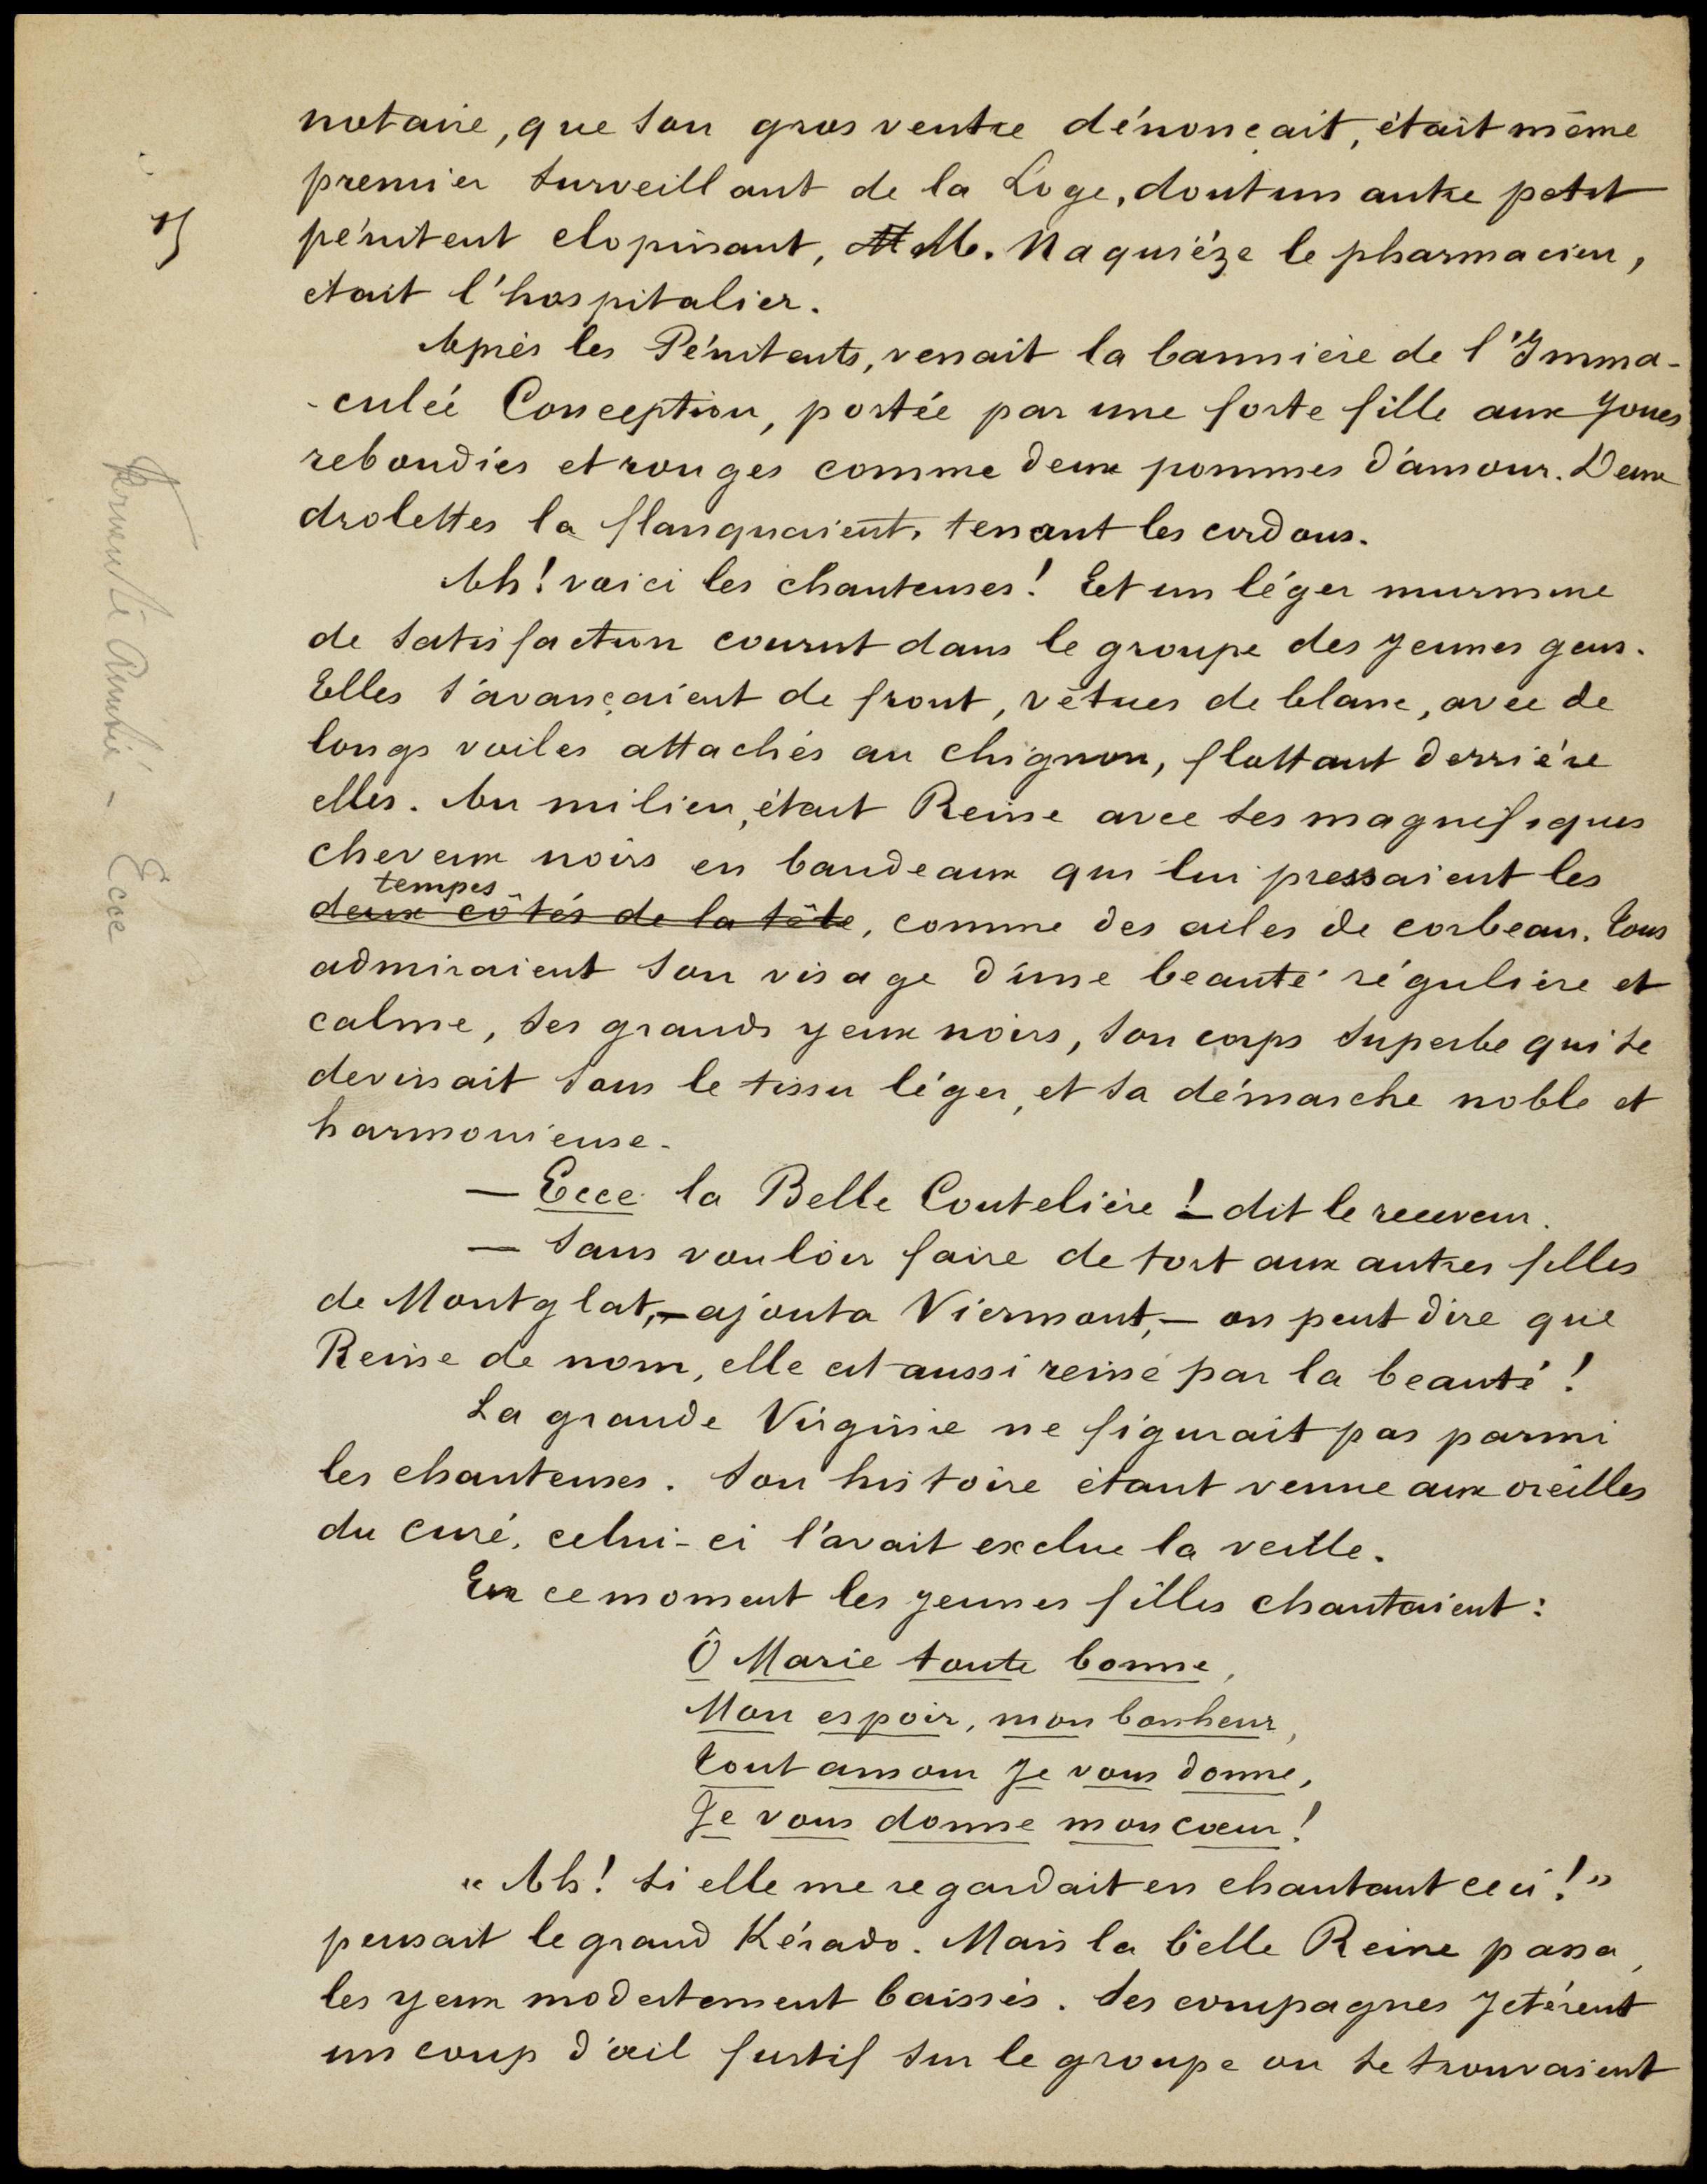 notaire, que son gros ventre dénonçait, était même
premier surveillant de la Loge, dont un autre petit
pénitent clopinant, M. Naquiéze le pharmacien,
était l'hospitalier.
Après les Pénitents, venait la bannière de l'Imma-
-culée Conception, portée par une forte fille aux joues
rebondies et rouges comme deux pommes d'amour. Deux
drolettes la flanquaient, tenant les cordons.
Ah! voici les chanteuses! Et un léger murmure
de satisfaction courut dans le groupe des jeunes gens.
Elles s'avançaient de front, vêtues de blanc, avec de
longs voiles attachés au chignon, flottant derrière
elles. Au milieu, était Reine avec ses magnifiques
cheveux noirs en bandeaux qui lui pressaient les
tempes
deux côtés de la tête, comme des ailes de corbeau. Tous
admiraient son visage d'une beauté régulière et
calme, ses grands yeux noirs, son corps superbe qui se
devinait sous le tissu léger, et sa démarche noble et
harmonieuse.
— Ecce la Belle Coutelière! — dit le receveur.
— Sans vouloir faire de tort aux autres filles
de Montglat, — ajouta Viermont, — on peut dire que
Reine de nom, elle est aussi reine par la beauté!
La grande Virginie ne figurait pas parmi
les chanteuses. Son histoire étant venue aux oreilles
du curé, celui-ci l'avait exclue la veille.
En ce moment les jeunes filles chantaient:
Ô Marie toute bonne,
Mon espoir, mon bonheur,
Tout amour je vous donne,
Je vous donne mon cœur!
« Ah! si elle me regardait en chantant ceci! »
pensait le grand Kérado. Mais la belle Reine passa,
les yeux modestement baissés. Ses compagnes jetèrent
un coup d'œil furtif sur le groupe ou se trouvaient
Ecce